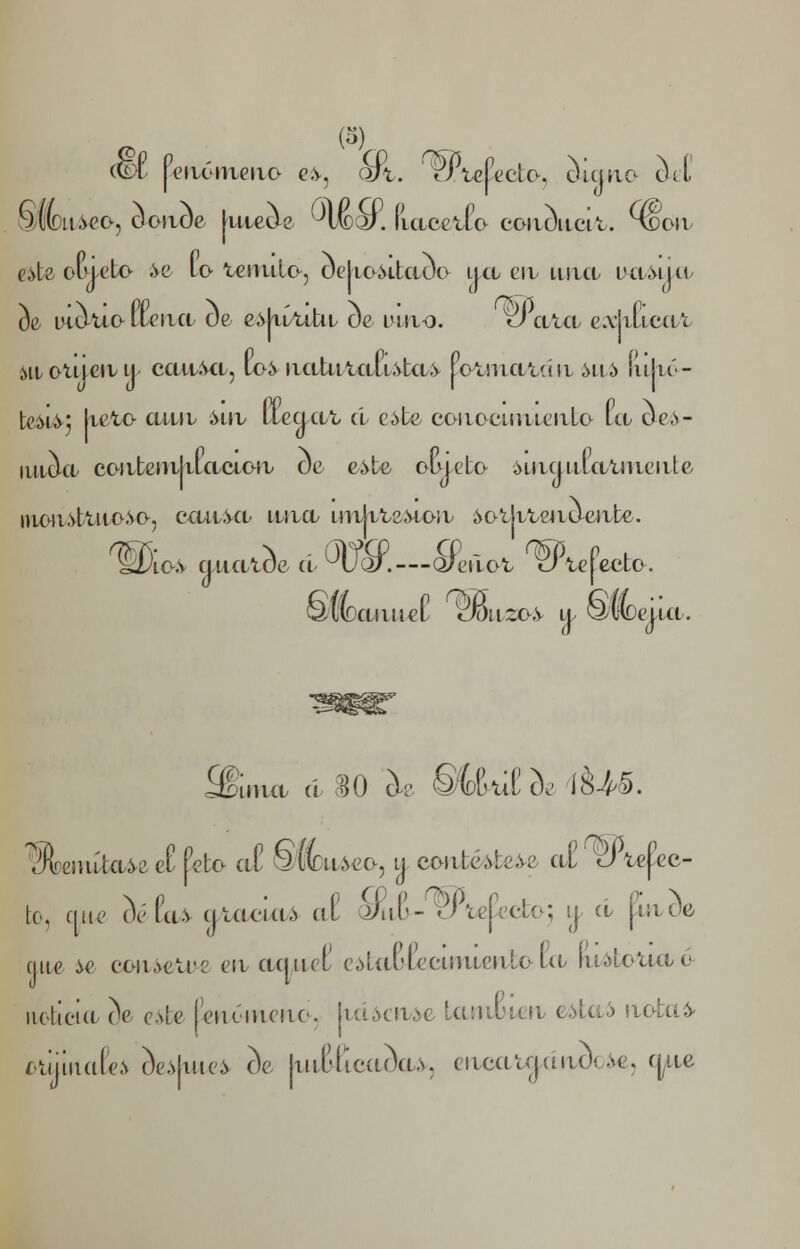 (5)
El fenómeno es, Sr. Prefecto, digno del
Museo, donde puede VES. hacerlo conducir. Con
este objeto se lo remito, depositado ya en una vasija
de vidrio llena de espíritu de vino. Para explicar
su orijen y causa, los naturalistas formarán sus hipó-
tesis; pero aun sin llegar á este conocimiento la des-
nuda contemplacion de este objeto singularmente
monstruoso, causa una impresion sorprendente.
Dios guarde á VS.---Señor Prefecto.
Manuel Buzos y Mejia.
Lima á 30 de Abril de 1845.
Remítase el feto al Museo, y contéstese al Prefec-
to, que dé las gracias al Sub-Prefecto; y á fin de
que se conserve en aquel establecimiento la historia ó
noticia de este fenómeno, pásense tambien estas notas
orijinales despues de publicadas, encargándose, que